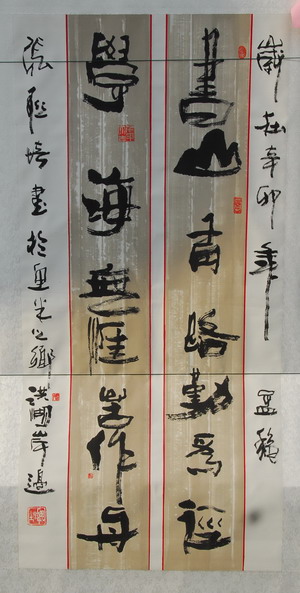 歲在辛卯年 孟秋
書山有路勤為徑
學海無涯苦作舟
張耀培書於
之鄉洪湖岸邊